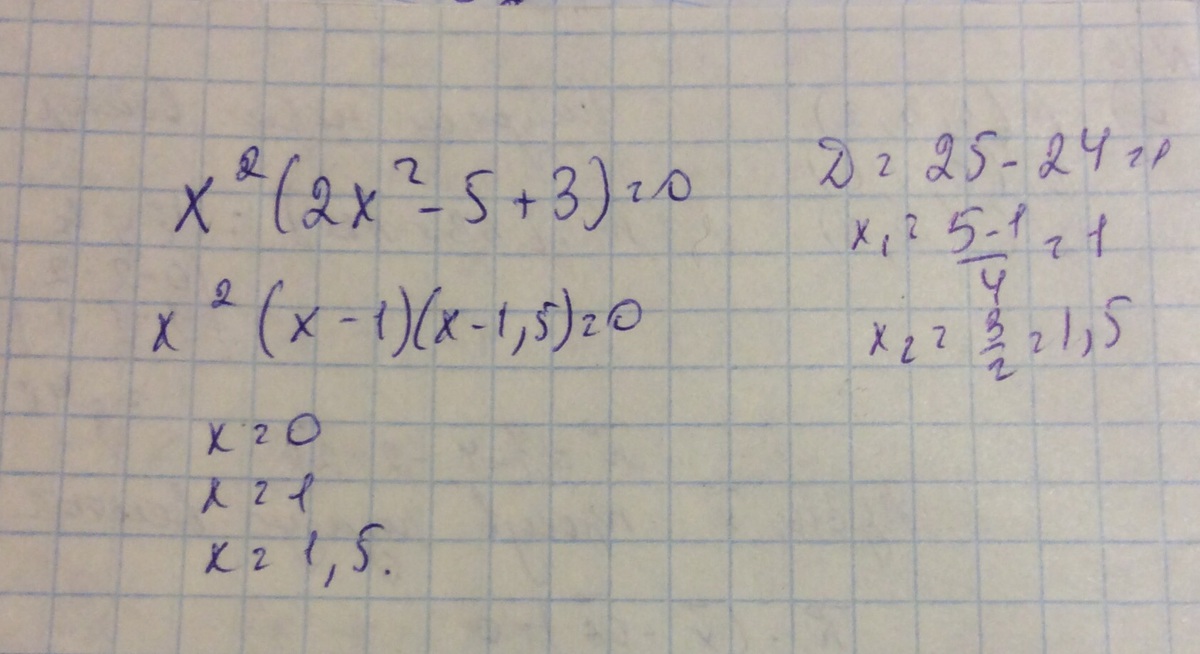 x²(2x² - 5 + 3) = 0
x²(x - 1)(x - 1,5) = 0
x = 0
x = 1
x = 1,5.
D = 25 - 24 = 1
x₁ = (5-1)/4 = 1
x₂ = 3/2 = 1,5